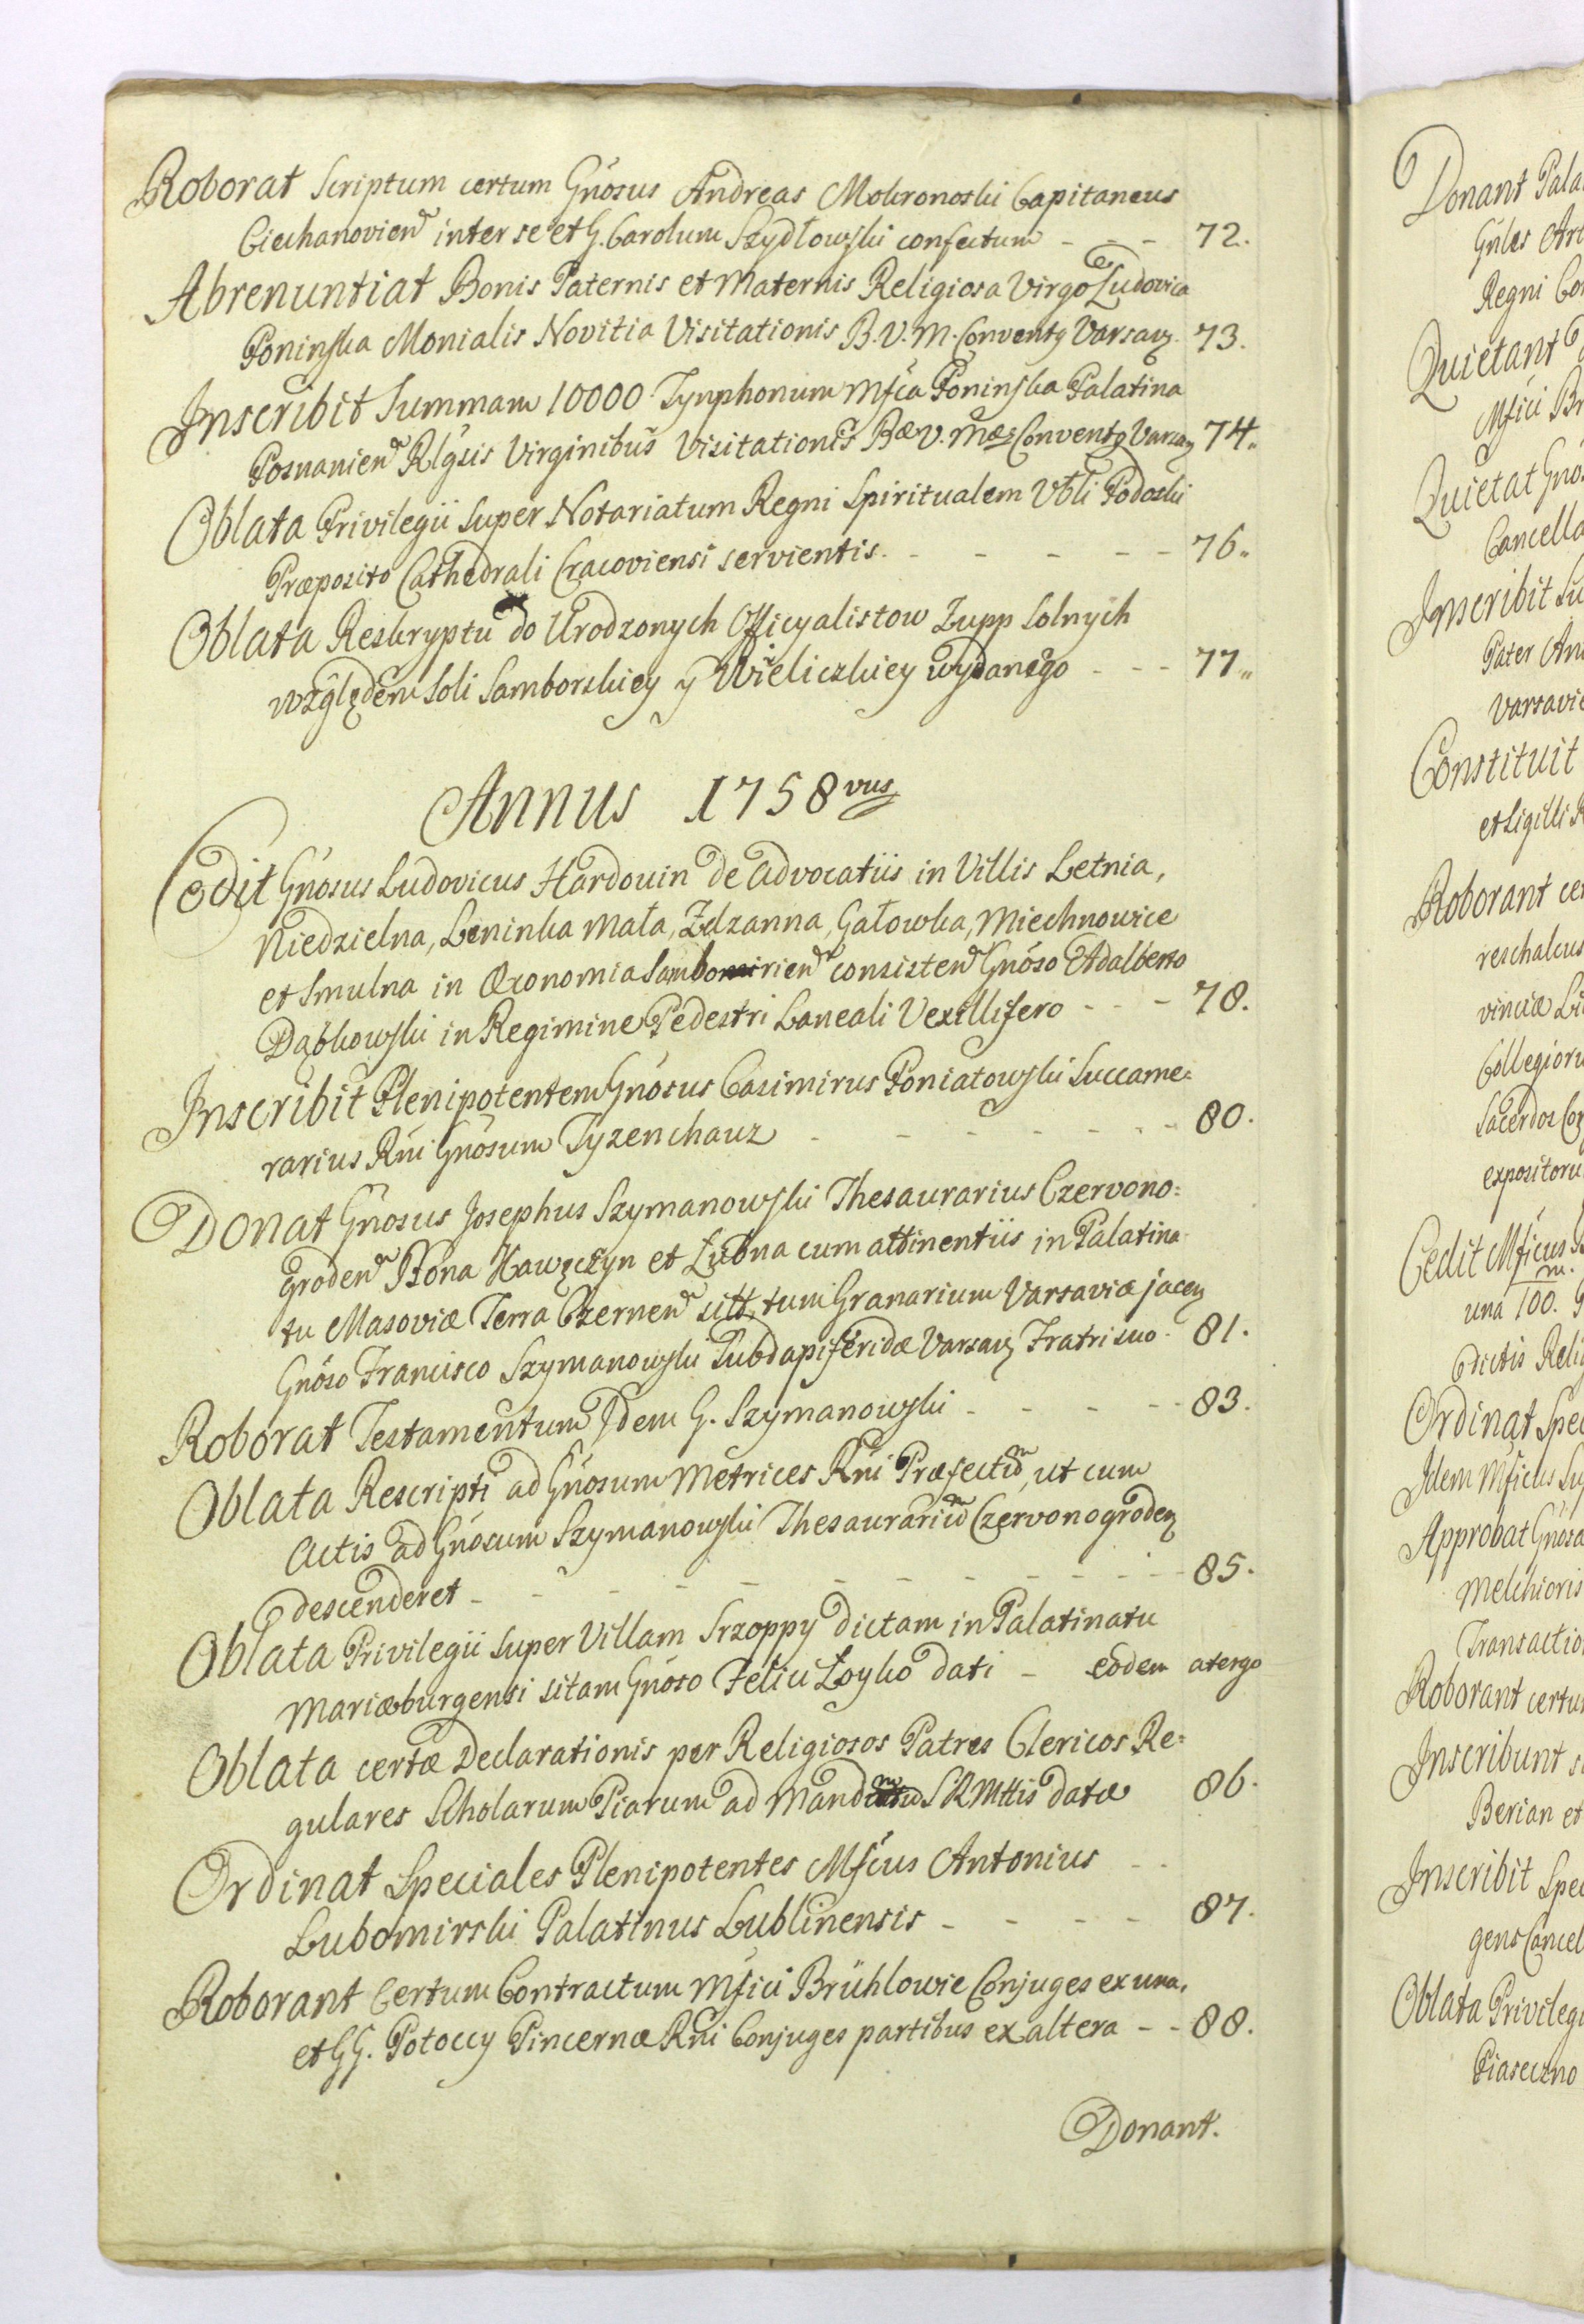 Roborat Scriptum certum Gnosus Andreas Mokronoski Capitaneus
Ciechanovien inter se et G. Carolum Szydłowski confectum - - - 72.
Abrenuntiat Bonis Paternis et Maternis Religiosa Virgo Ludovica
Poninska Monialis Novitia Visitationis B. V. M. Convent9 Varsav. 73.
Inscribit Summam 10000 Tynphonum Mfca Poninska Palatina
Posnanien Rlgsis Virginibus Visitationis Bæ V. Mæ Convent9 Varsav 74.
Oblata Privilegii super Notariatum Regni Spiritualem Vbli Podoski
Præposito Cathedrali Cracoviensi servientis. - - - - - 76.
Oblata Reskryptu do Urodzonych Officyalistow Zupp Solnych
względem Soli Samborskiey y Wieliczkiey wydanego - - - 77.
Annus 1758vus
Cedit Gnosus Ludovicus Hardouin de Advocatiis in Villis Letnia,
Niedzielna, Leninka Mała, Zdzanna, Gałowka, Miechnowice
et Smulna in Œconomia Samborien consisten Gnoso Adalberto
Dąbkowski in Regimine Pedestri Laneali Vexillifero - - - 78.
Inscribit Plenipotentem Gnosus Casimirus Poniatowski Succame=
rarius Rni Gnosum Tyzenchauz - - - - - - - 80.
Donat Gnosus Josephus Szymanowski Thesaurarius Czervono=
groden Bona Hawęczyn et Łubna cum attinentiis in Palatina
tu Masoviæ Terra Czernen sitt, tum Granarium Varsaviæ jacen
Gnoso Francisco Szymanowski Subdapiferidæ Varsav Fratri suo - 81.
Roborat Testamentum Idem G. Szymanowski - - - - - 83.
Oblata Rescripti ad Gnosum Metrices Rni Præfectum, ut cum
Actis ad Gnosum Szymanowski Thesaurarium Czervonogroden
descenderet - - - - - - - - - - - 85.
Oblata Privilegii super Villam Srzoppy dictam in Palatinatu
Mariæburgensi sitam Gnoso Felici Łoyko dati - eodem atergo
Oblata certæ Declarationis per Religiosos Patres Clericos Re=
gulares Scholarum Piarum ad Mandatum S R Mttis datæ 86.
Ordinat Speciales Plenipotentes Mfcus Antonius - -
Lubomirski Palatinus Lublinensis - - - - 87.
Roborant Certum Contractum Mfici Brühlowie Conjuges ex una,
et GG. Potoccy Pincernæ Rni Conjuges partibus ex altera - - 88.
Donant.
Donant Pala
Gnles Art
Regni Co
Quietant
Mfici Br
Quietat Gnos
Cancella
Inscribit Su
Pater An
Varsavie
Constituit
et Sigilli R
Roborant cer
reschalcus
vinciæ Li
Collegioru
Sacerdos Co
expositoru
Cedit Mficus
una 100.
dictis Reli
Ordinat Spec
Idem Mficus Su
Approbat Gnosa
Melchioris
Transactio
Roborant certu
Inscribunt s
Berian et
Inscribit Spec
gens Cancel
Oblata Privilegi
Piaseczno